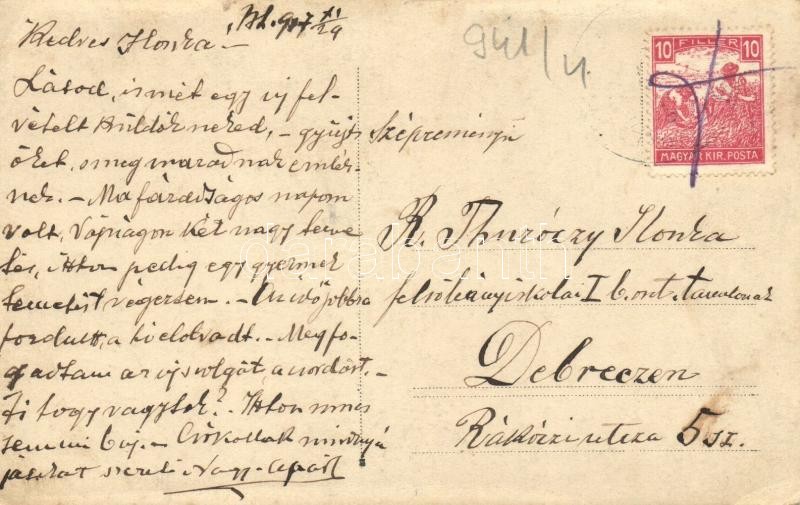 Kedves Ilonka –
Bl. 917 XI/29
Látod, ismét egy uj fel-
vételt küldök neked, – gyüjts
őket, s megmaradnak emlék-
nek. – Ma fáradságos napom
volt, Vajnágon két nagy teme
tés, itthon pedig egy gyermek
temetést végeztem. – Az idő jobbra
fordult, a hó elolvadt. – Megfo-
gadtam az uj szolgát, a csordást. –
Ti hogy vagytok? Itthon nincs
semmi baj. – Csókollak mindnyá
jatokat szerető Nagy-Apád
941/4
10 FILLÉR 10
MAGYAR KIR. POSTA
Szépreményű
R. Thuróczy Ilonka
felsőleányiskolai I b. oszt. tanulónak
Debreczen
Rákóczi utcza 5 sz.